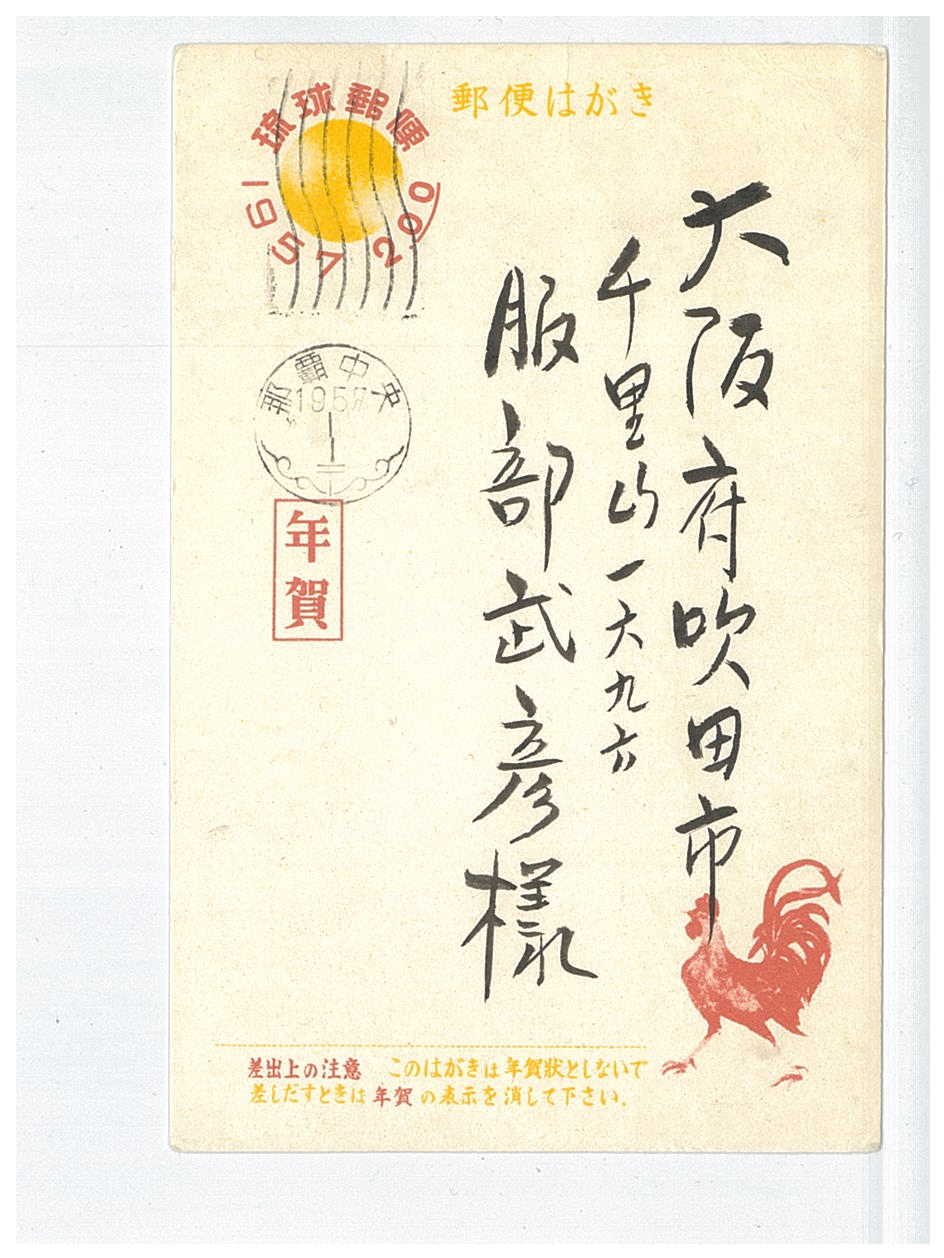 郵便はがき
琉球郵便
1957 2.00
那覇中央
1957
年賀
大阪府吹田市
千里山一六九六
服部武彦様
差出上の注意 このはがきは年賀状としないで
差しだすときは年賀の表示を消して下さい。